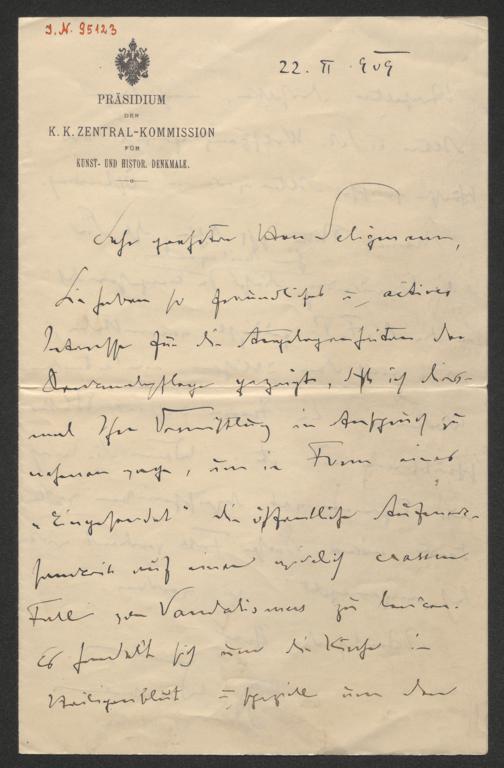 J.N. 95123
22. II. 909
PRÄSIDIUM
DER
K. K. ZENTRAL-KOMMISSION
FÜR
KUNST- UND HISTOR. DENKMALE.
Sehr geehrter Herr Seligmann,
Sie haben so freundliches u. actives
Interesse für die Angelegenheiten der
Denkmalpflege gezeigt, daß ich dies-
mal Ihre Vermittlung in Anspruch zu
nehmen wage, um in Form eines
„Eingesendet" die öffentliche Aufmerk-
samkeit auf einen wirklich crassen
Fall von Vandalismus zu lenken.
Es handelt sich um die Kirche in
Heiligenblut u. speziell um den